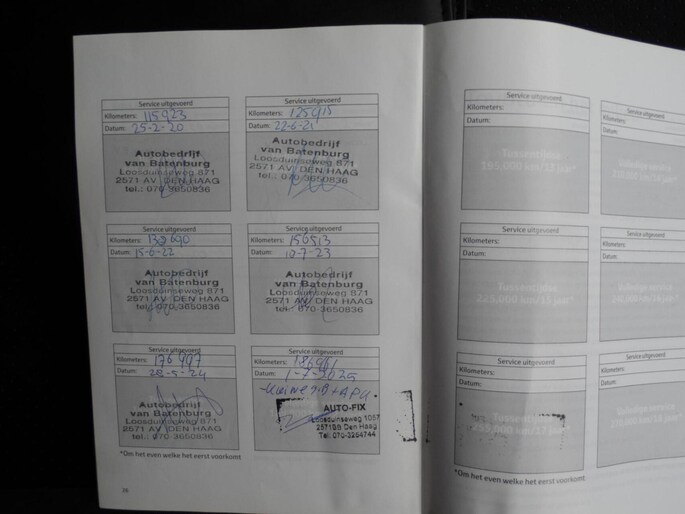 Service uitgevoerd
Kilometers: 115923
Datum: 25-2-20
Autobedrijf
van Batenburg
Loosduinseweg 871
2571 AV DEN HAAG
tel.: 070-3650836
Service uitgevoerd
Kilometers: 125915
Datum: 22-6-21
Autobedrijf
van Batenburg
Loosduinseweg 871
2571 AV DEN HAAG
tel.: 070-3650836
Service uitgevoerd
Kilometers:
Datum: 15-6-22
Autobedrijf
van Batenburg
Loosduinseweg 871
2571 AV DEN HAAG
tel.: 070-3650836
Service uitgevoerd
Kilometers: 150513
Datum: 10-7-23
Autobedrijf
van Batenburg
Loosduinseweg 871
2571 AV DEN HAAG
tel.: 070-3650836
Service uitgevoerd
Kilometers: 176997
Datum: 28-5-24
Autobedrijf
van Batenburg
Loosduinseweg 871
2571 AV DEN HAAG
tel.: 070-3650836
Service uitgevoerd
Kilometers:
Datum: 1-7-2025
AUTO-FIX
Loosduinseweg 1057
Den Haag
Tel: 070-3254744
*Om het even welke het eerst voorkomt
Service uitgevoerd
Kilometers:
Datum:
Tussentijdse
195,000 km/13 jaar*
Service uitgevoerd
Kilometers:
Datum:
Service uitgevoerd
Kilometers:
Datum:
Tussentijdse
225,000 km/15 jaar*
Service uitgevoerd
Kilometers:
Datum:
Service uitgevoerd
Kilometers:
Datum:
Tussentijdse
255,000 km/17 jaar*
Service uitgevoerd
Kilometers:
Datum:
*Om het even welke het eerst voorkomt